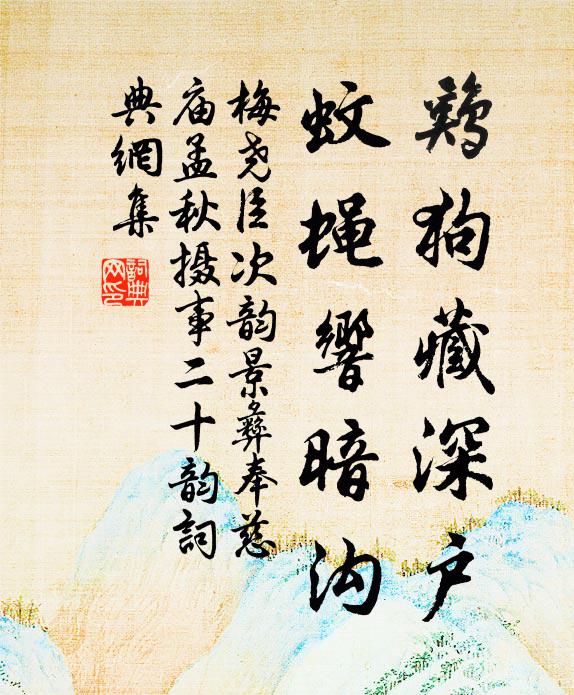 鸡狗藏深户
蚊蝇響暗沟
梅尧臣次韵景彝奉慈
庙孟秋摄事二十韵詞
典網集
詞典網印